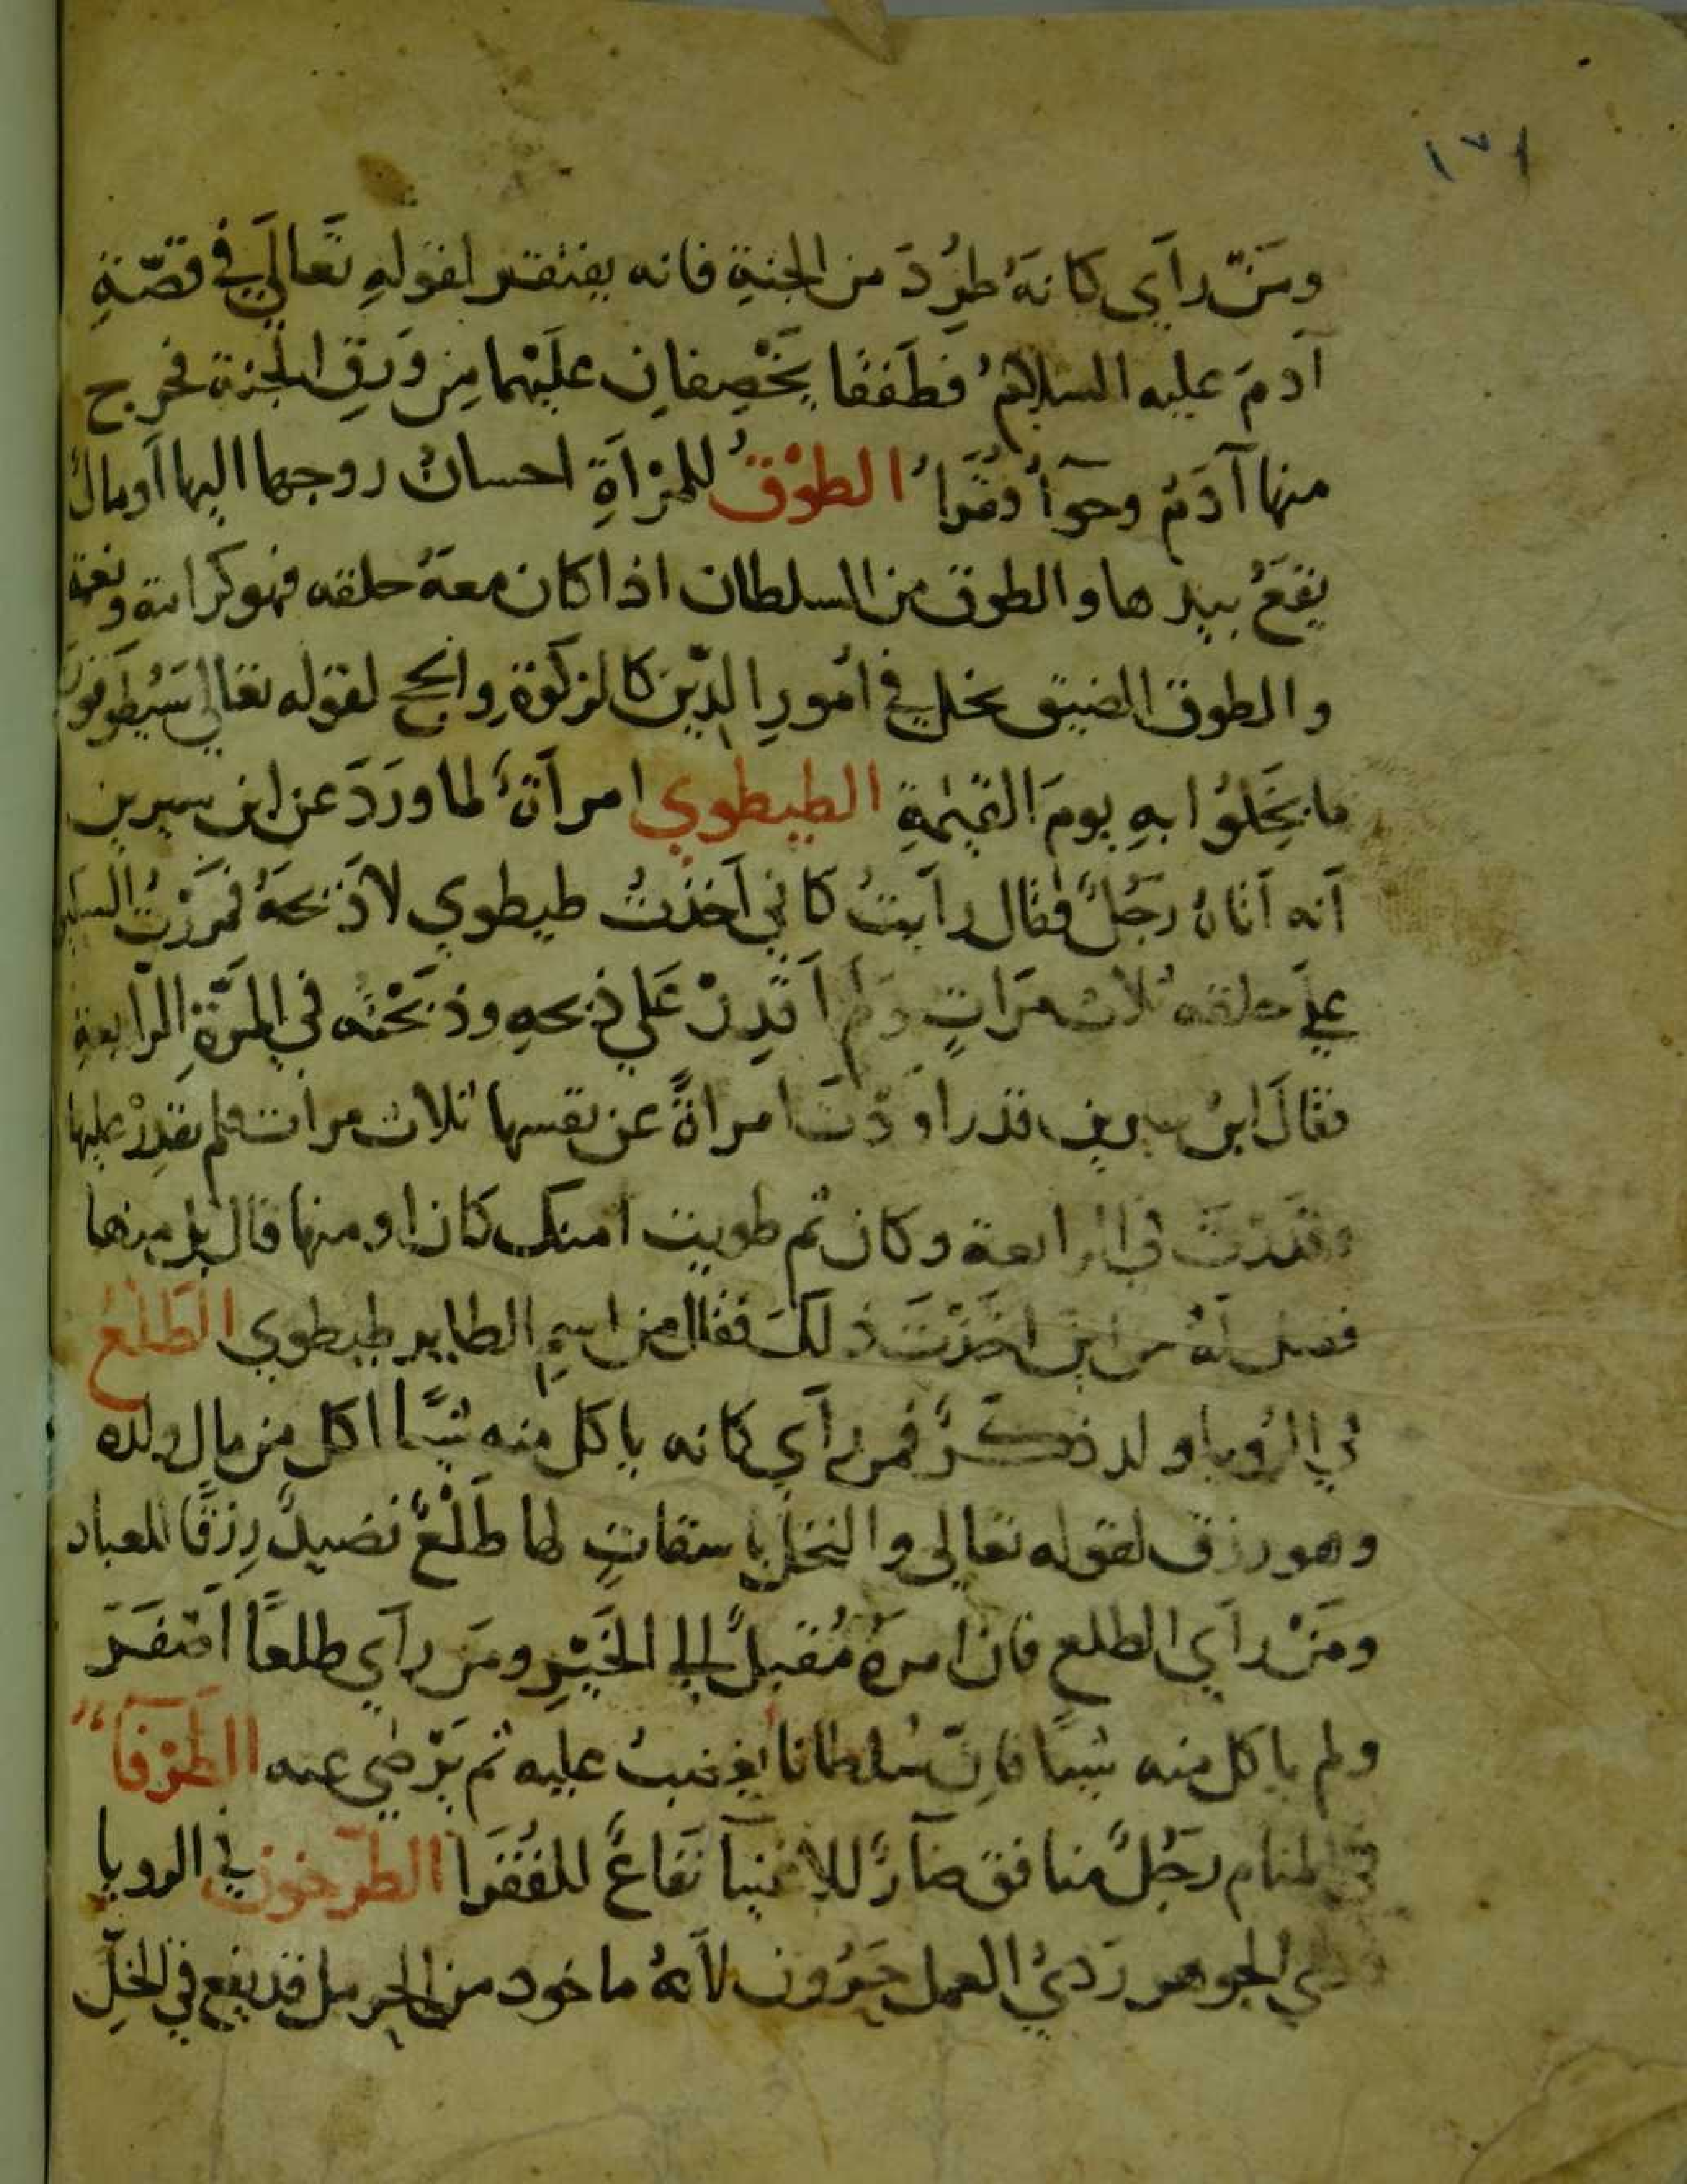 ١٧١
ومَنْ رآي كانهُ طُرِدَ من الجنةِ فانه يفتقر لقولهِ تَعالَي في قصّةِ
آدمَ عليه السلامُ فطَفقا يَخْصِفانِ علَيْهما مِن وَرَقِ الجنة فخرج
منها آدَمُ وحوآءُ فُقَرا الطوْقُ للمرْاَةِ احسانُ زوجها اليها اَو مالٌ
يَقَعُ بيدها والطوق من السلطان اذا كان معهُ حلقه فهو كرامة ونعمة
والطوق الضيق بخل في امُورِ الدّين كالزكوة والحج لقوله تعالي سَيُطوَّقونَ
ما بَخِلوُا بهِ يومَ القيٰمةِ الطيطوي امرآةٌ لما وَرَدَ عن ابن سيرين
آنه آتاهُ رجُلٌ فقال رآيتُ كاني آخذتُ طيطوي لاَذبحَهُ فمرّرْتُ السكين
علَي حلقه ثلاث مَرّاتٍ ولم اَقدِرْ عَلي ذبحهِ وذبَحْتُه في المَرّةِ الرّابعةِ
فقالَ ابنُ سيرين قد راودْتَ امراةً عن نفسها ثلاث مرات فلم تقدِرْ عليها
وقدَرْتَ في الرابعة وكان ثم طويت امنك كان او منها قال بل منها
فقيل لَهُ من اين اخَذْتَ ذلكَ فقال من اسمِ الطاير طيطوي الطَلْعُ
في الرُويا ولد ذكَرٌ فمن رآي كانه ياكل منه شَيًا اكل من مال ولده
وهو رزق لقوله تعالي والنخل باسقاتٍ لها طَلْعٌ نضيدٌ رِزقًا للعباد
ومَنْ رآي الطلع فان امرهُ مُقبلٌ الي الخَيْرِ ومَن رآي طلعًا اَصفَرَ
ولم ياكل منه شيا فاِنّ سُلطانا يغضبُ عليه ثم يَرْضي عنه الطَرْفآ
في المنام رجُلٌ منافق ضآرٌ للاغنيآ نَفاعٌ للفُقَرا الطرخون في الرويا
الجوهر رَديُ العمل لاَنهُ ماخود من الحرمل قد يقع في الخلِّ